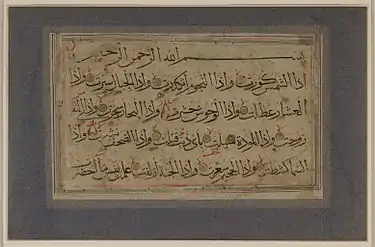 بسم الله الرحمن الرحيم
اذا الشمس كورت واذا النجوم انكدرت واذا الجبال سيرت واذا
العشار عطلت واذا الوحوش حشرت واذا البحار سجرت واذا النفوس
زوجت واذا الموءدة سئلت باى ذنب قتلت واذا الصحف نشرت واذا
السماء كشطت واذا الجحيم سعرت واذا الجنة ازلفت علمت نفس ما احضرت